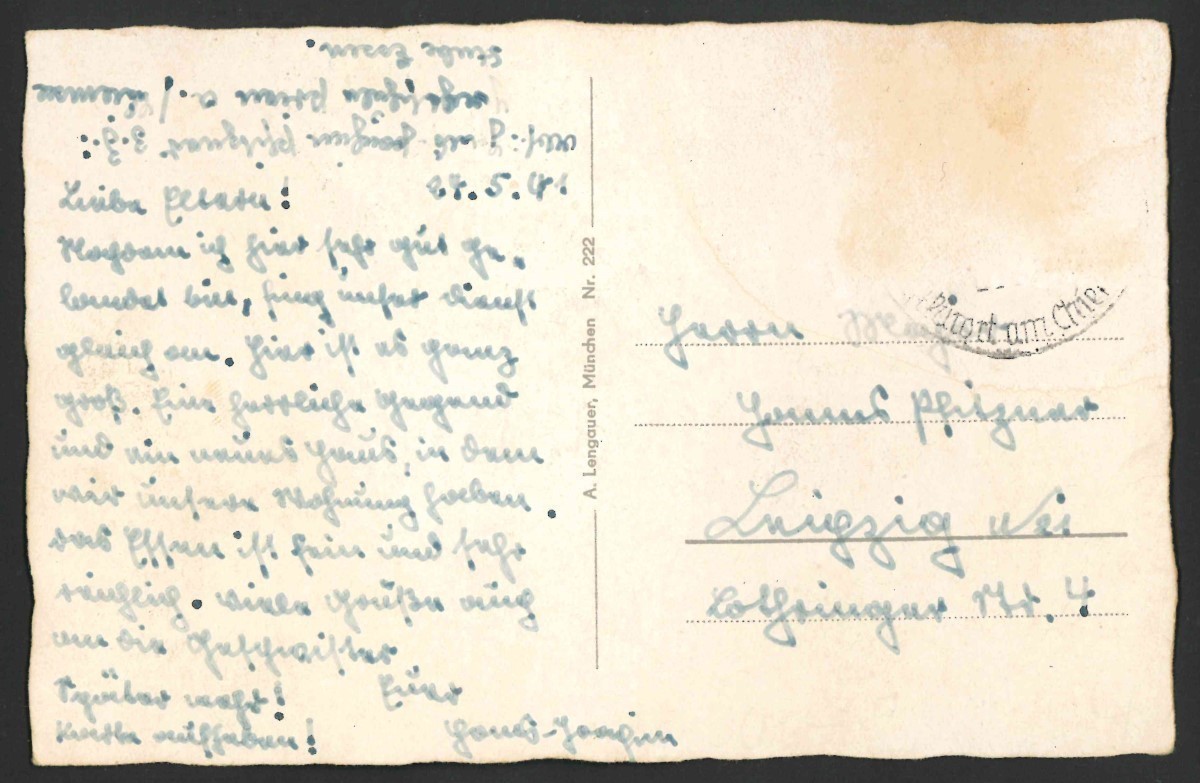 Abs.: Hans-Joachim Pfitzner z. Z.:
Prien a. /
Stube Essen.
27.5.41.
Liebe Eltern!
Nachdem ich hier sehr gut ge-
landet bin, fing unser Dienst
gleich an. Hier ist es ganz
groß. Eine herrliche Gegend
und ein neues Haus, in dem
wir unsere Wohnung haben.
Das Essen ist fein und sehr
reichlich. Viele Grüße auch
an die Geschwister
Später mehr! Euer
Karte aufheben! Hans-Joachim
A. Lengauer, München Nr. 222
am Chie
Herrn
Hanns Pfitzner
Leipzig
Lothringer Str. 4